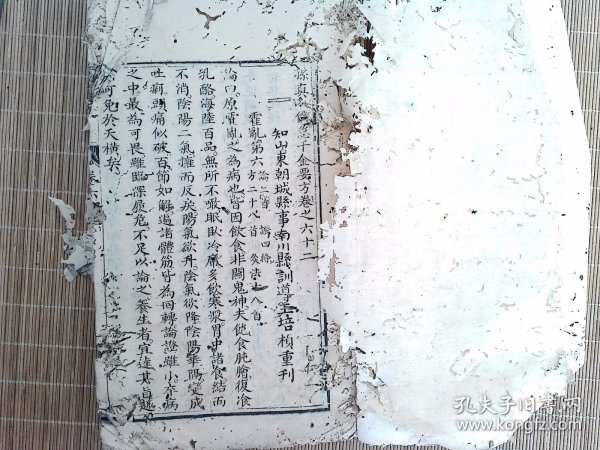 孫真人備急千金要方卷之六十二
知山東朝城縣事南川縣訓導王培楨重刊
霍亂第六 方二十八首 論二首 證四條 灸法十八首
論曰原霍亂之為病也皆因飲食非關鬼神夫飽食肫膾復飡
乳酪海陸百品無所不噉眠臥冷席多飲寒漿胃中諸食結而
不消陰陽二氣擁而反戾陽氣欲升陰氣欲降陰陽乖隔變成
吐痢頭痛似破百節如解遍諸體筋皆為回轉論證雖小卒病
之中最為可畏雖臨深履危不足以論之養生者宜達其旨趣
可免於夭橫矣
孔夫子旧书网
book.kongfz.com